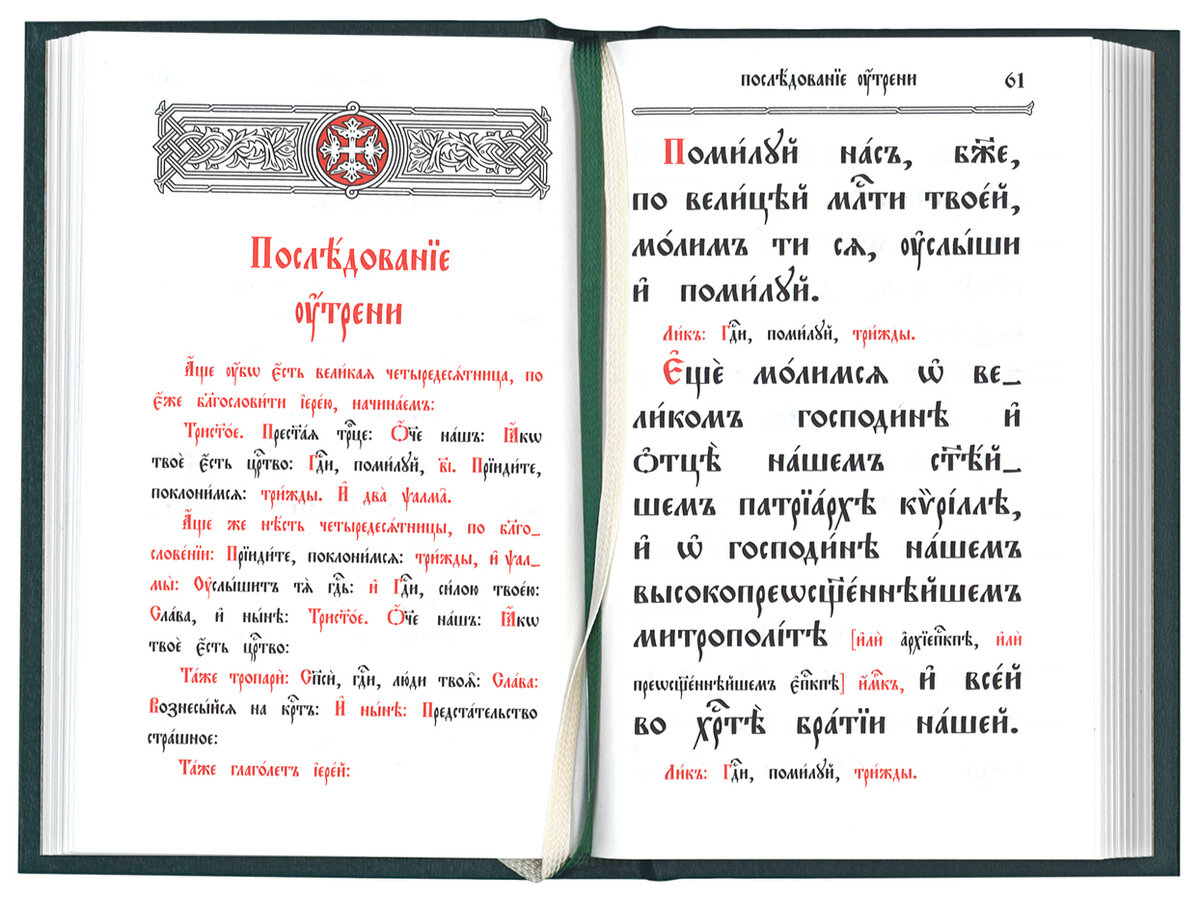 Послѣ́дованїе
ᲂу҆́трени
А҆́ще ᲂу҆́бѡ є҆́сть вели́каѧ четыредесѧ́тница, по
є҆́же блг҃ослови́ти і҆ере́ю, начина́емъ:
Трист҃о́е. Прест҃а́ѧ трⷪ҇це: Ѻ҆́ч҃е на́шъ: Ꙗ҆́кѡ
твоѐ є҆́сть црⷭ҇тво: Гдⷭ҇и, поми́лꙋй, в҃і. Прїиди́те,
поклони́мсѧ: три́жды. И҆ два̀ ѱалма̑.
А҆́ще же нѣ́сть четыредесѧ́тницы, по бл҃го_
слове́нїи: Прїиди́те, поклони́мсѧ: три́жды, и҆ ѱал_
мы̀: Оу҆слы́шитъ тѧ̀ гдⷭ҇ь: и҆ Гдⷭ҇и, си́лою твое́ю:
Сла́ва, и҆ ны́нѣ: Трист҃о́е. Ѻ҆́ч҃е на́шъ: Ꙗ҆́кѡ
твоѐ є҆́сть црⷭ҇тво:
Та́же тропарѝ: Сп҃сѝ, гдⷭ҇и, лю́ди твоѧ̑: Сла́ва:
Вознесы́йсѧ на крⷭ҇тъ: И҆ ны́нѣ: Предста́тельство
стра́шное:
Та́же глаго́летъ і҆ере́й:
послѣ́дованїе ᲂу҆́трени 61
Поми́лꙋй на́съ, бж҃е,
по вели́цѣй млⷭ҇ти твое́й,
мо́лимъ ти сѧ, ᲂу҆слы́ши
и҆ поми́лꙋй.
Ли́къ: Гдⷭ҇и, поми́лꙋй, три́жды.
Є҆щѐ мо́лимсѧ ѡ҆ ве_
ли́комъ господи́нѣ и҆
ѻ҆тцѣ̀ на́шемъ ст҃ѣ́й_
шемъ патрїа́рхѣ кѷрі́ллѣ,
и҆ ѡ҆ господи́нѣ на́шемъ
высокопреѡсщ҃е́ннѣйшемъ
митрополі́тѣ [и҆лѝ а҆рхїепⷭ҇кпѣ, и҆лѝ
преѡсщ҃е́ннѣйшемъ є҆пⷭ҇кпѣ] и҆́мⷬ҇къ, и҆ все́й
во хрⷭ҇тѣ̀ бра́тїи на́шей.
Ли́къ: Гдⷭ҇и, поми́лꙋй, три́жды.